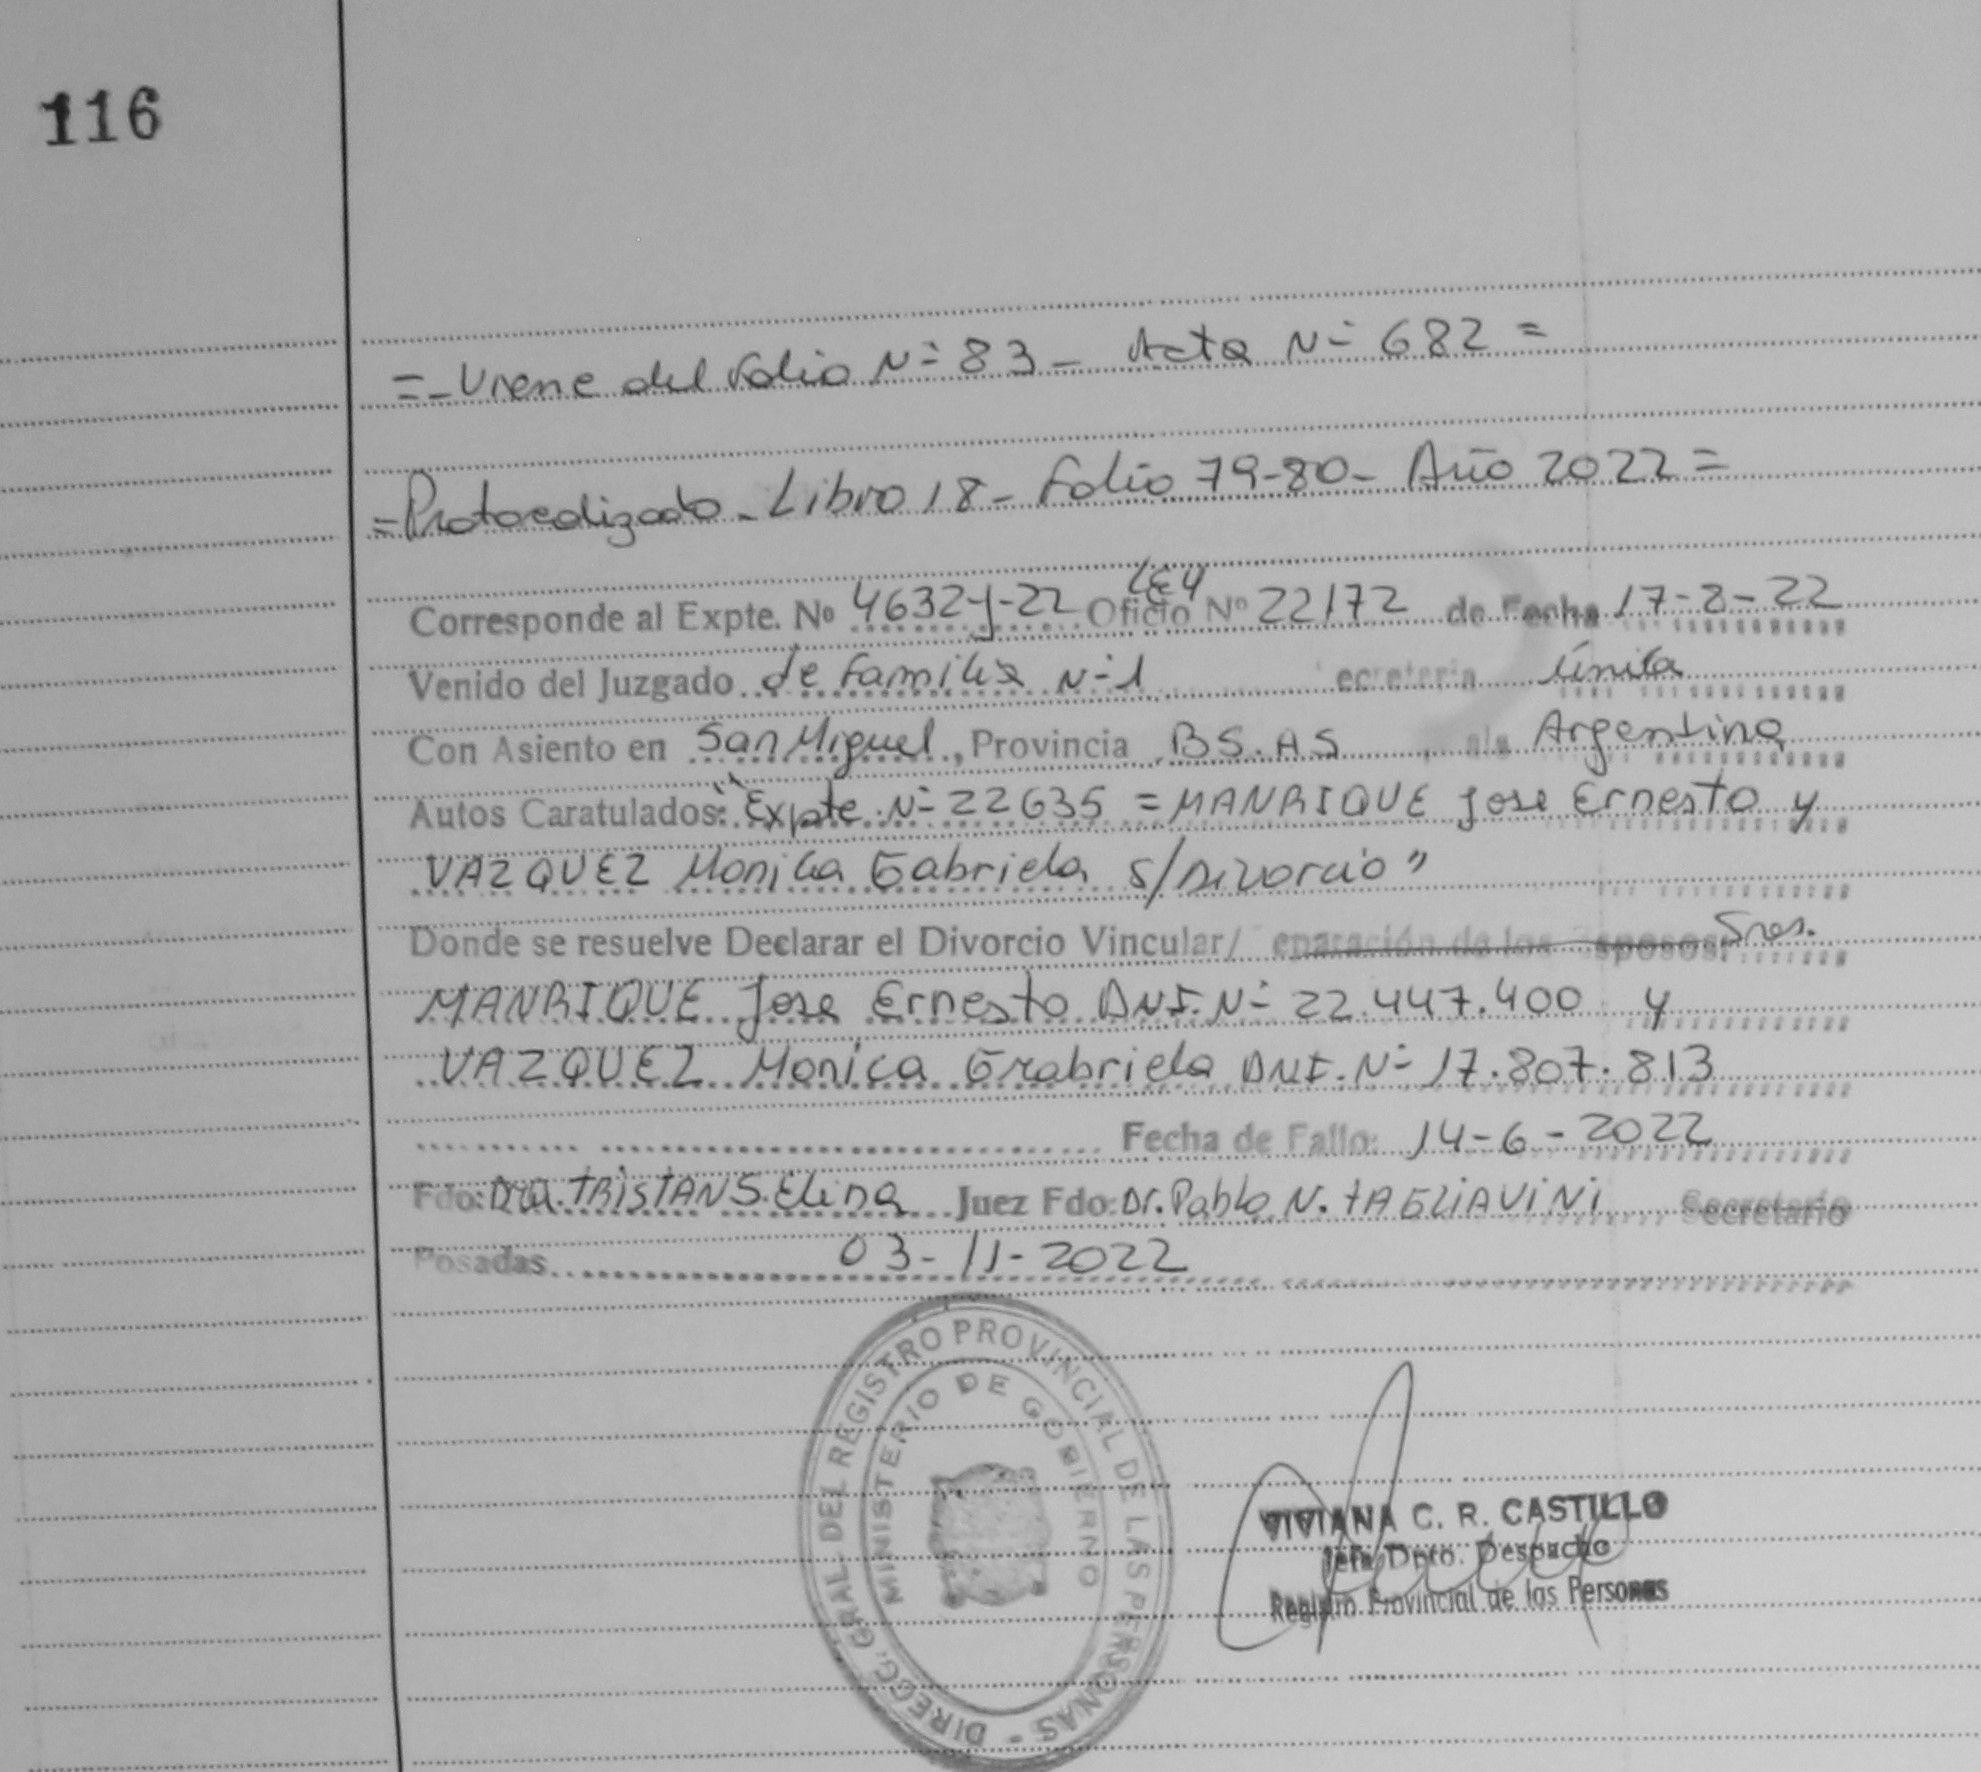 116
=-Viene del folio N° 83 - Acta N° 682 =
=Protocolizado - Libro 18 - Folio 79-80 - Año 2022 =
LEY
Corresponde al Expte. Nº 4632-J-22 Oficio Nº 22172 de Fecha 17-8-22
Venido del Juzgado de Familia N° 1 ecretería única
Con Asiento en San Miguel, Provincia BS.AS , aís Argentina
Autos Caratulados: "Expte N° 22635 = MANRIQUE Jose Ernesto y
VAZQUEZ Monica Gabriela s/Divorcio"
Donde se resuelve Declarar el Divorcio Vincular/ eparación de los sposos: Sres.
MANRIQUE Jose Ernesto DNI. N° 22.447.400 y
VAZQUEZ Monica Grabriela DNI. N° 17.807.813
Fecha de Fallo: 14-6-2022
Fdo: Dra. TRISTAN S. Elina Juez Fdo: Dr. Pablo N. TAGLIAVINI Secretario
Posadas 03-11-2022
DIRECC. GRAL DEL REGISTRO PROVINCIAL DE LAS PERSONAS -
MINISTERIO DE GOBIERNO
VIVIANA C. R. CASTILLO
Jefa Dpto. Despacho
Registro Provincial de las Personas